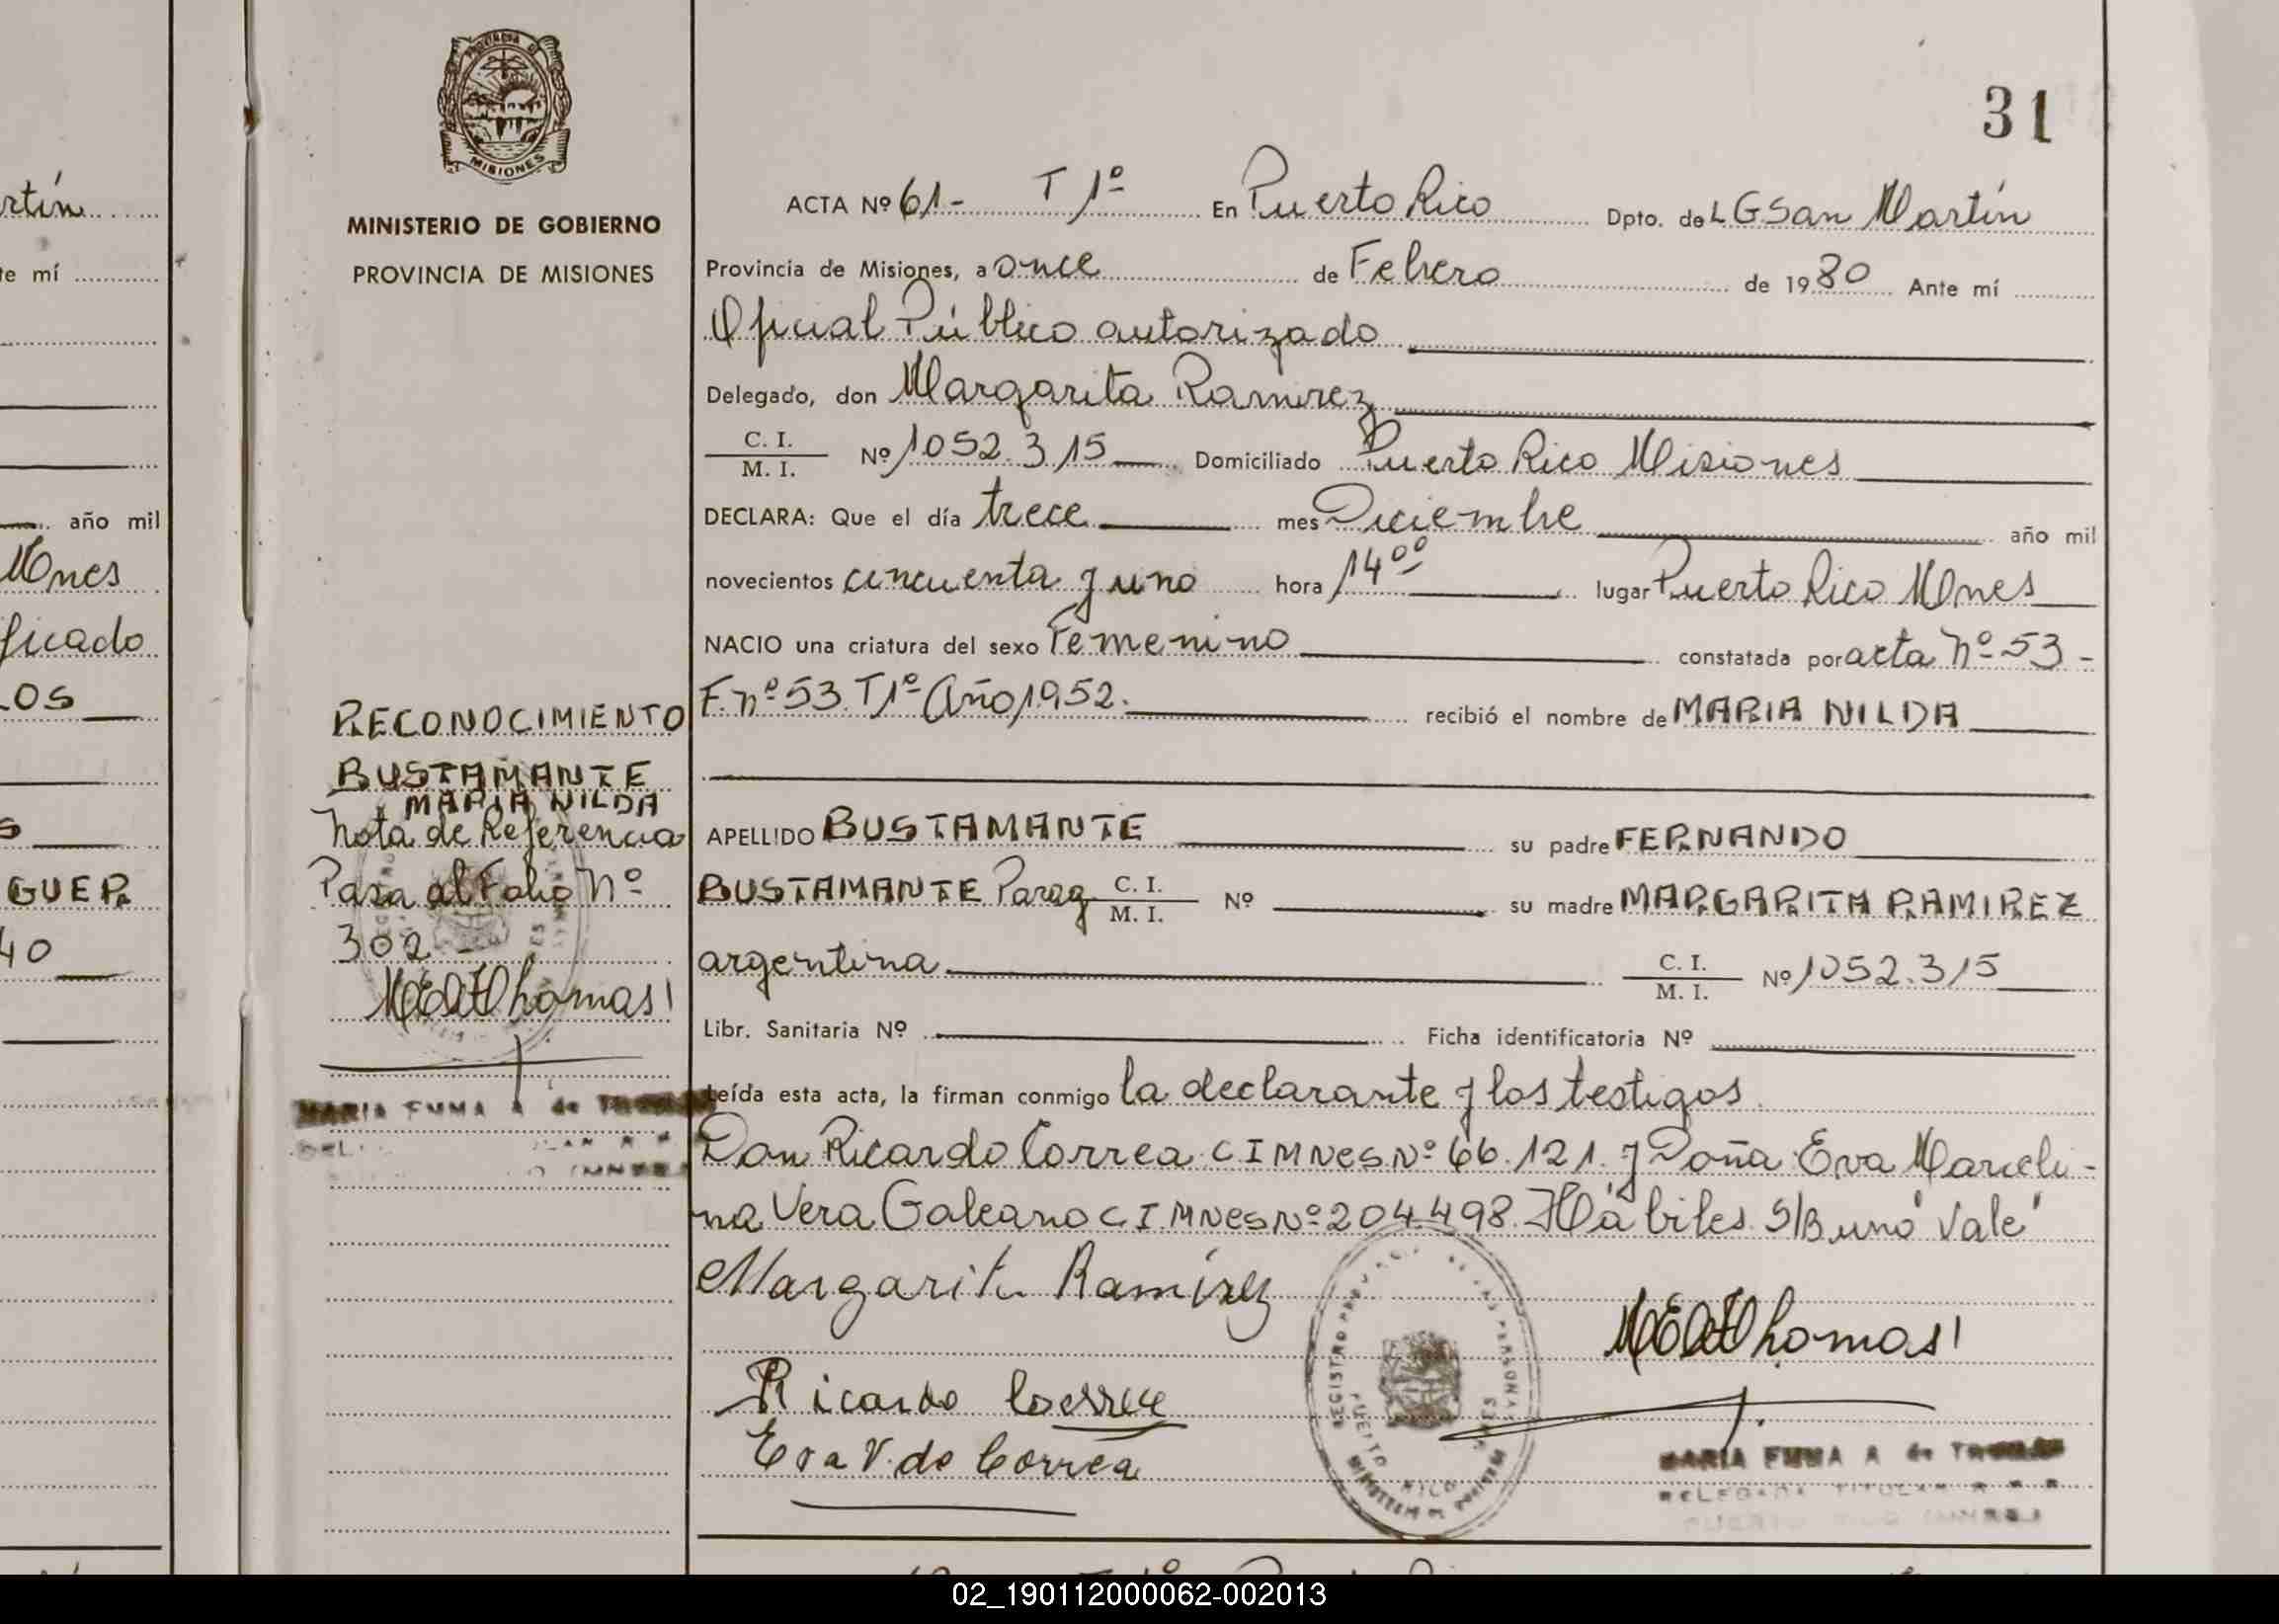 PROVINCIA DE
MISIONES
MINISTERIO DE GOBIERNO
PROVINCIA DE MISIONES
RECONOCIMIENTO
BUSTAMANTE
MARIA NILDA
Nota de Referencia
Pasa al Folio Nº
302-
MEAThomas
MARIA EMMA A de
31
ACTA Nº 61- T 1º En Puerto Rico Dpto. de L G San Martín
Provincia de Misiones, a once de Febrero de 1980 Ante mí
Oficial Público autorizado
Delegado, don Margarita Ramirez
C. I. / M. I. Nº 1052.315 Domiciliado Puerto Rico Misiones
DECLARA: Que el día trece mes Diciembre año mil
novecientos cincuenta y uno hora 14ºº lugar Puerto Rico Mnes
NACIO una criatura del sexo Femenino constatada por acta Nº 53-
F. nº 53 T1º Año 1952. recibió el nombre de MARIA NILDA
APELLIDO BUSTAMANTE su padre FERNANDO
BUSTAMANTE Parag C. I. / M. I. Nº su madre MARGARITA RAMIREZ
argentina C. I. / M. I. Nº 1052.315
Libr. Sanitaria Nº Ficha identificatoria Nº
Leída esta acta, la firman conmigo la declarante y los testigos
Don Ricardo Correa C I MNES Nº 66.121. y Doña Eva Marceli-
na Vera Galeano C I MNES Nº 204.498. Hábiles. S/B uno "Vale"
Margarita Ramírez
MEAThomas
Ricardo Correa
Eva V. de Correa
MARIA EMMA A de
DELEGADA TITULAR
PUERTO RICO
rtín
te mí
año mil
Mnes
ficado
LOS
S
GUER
40
02_190112000062-002013